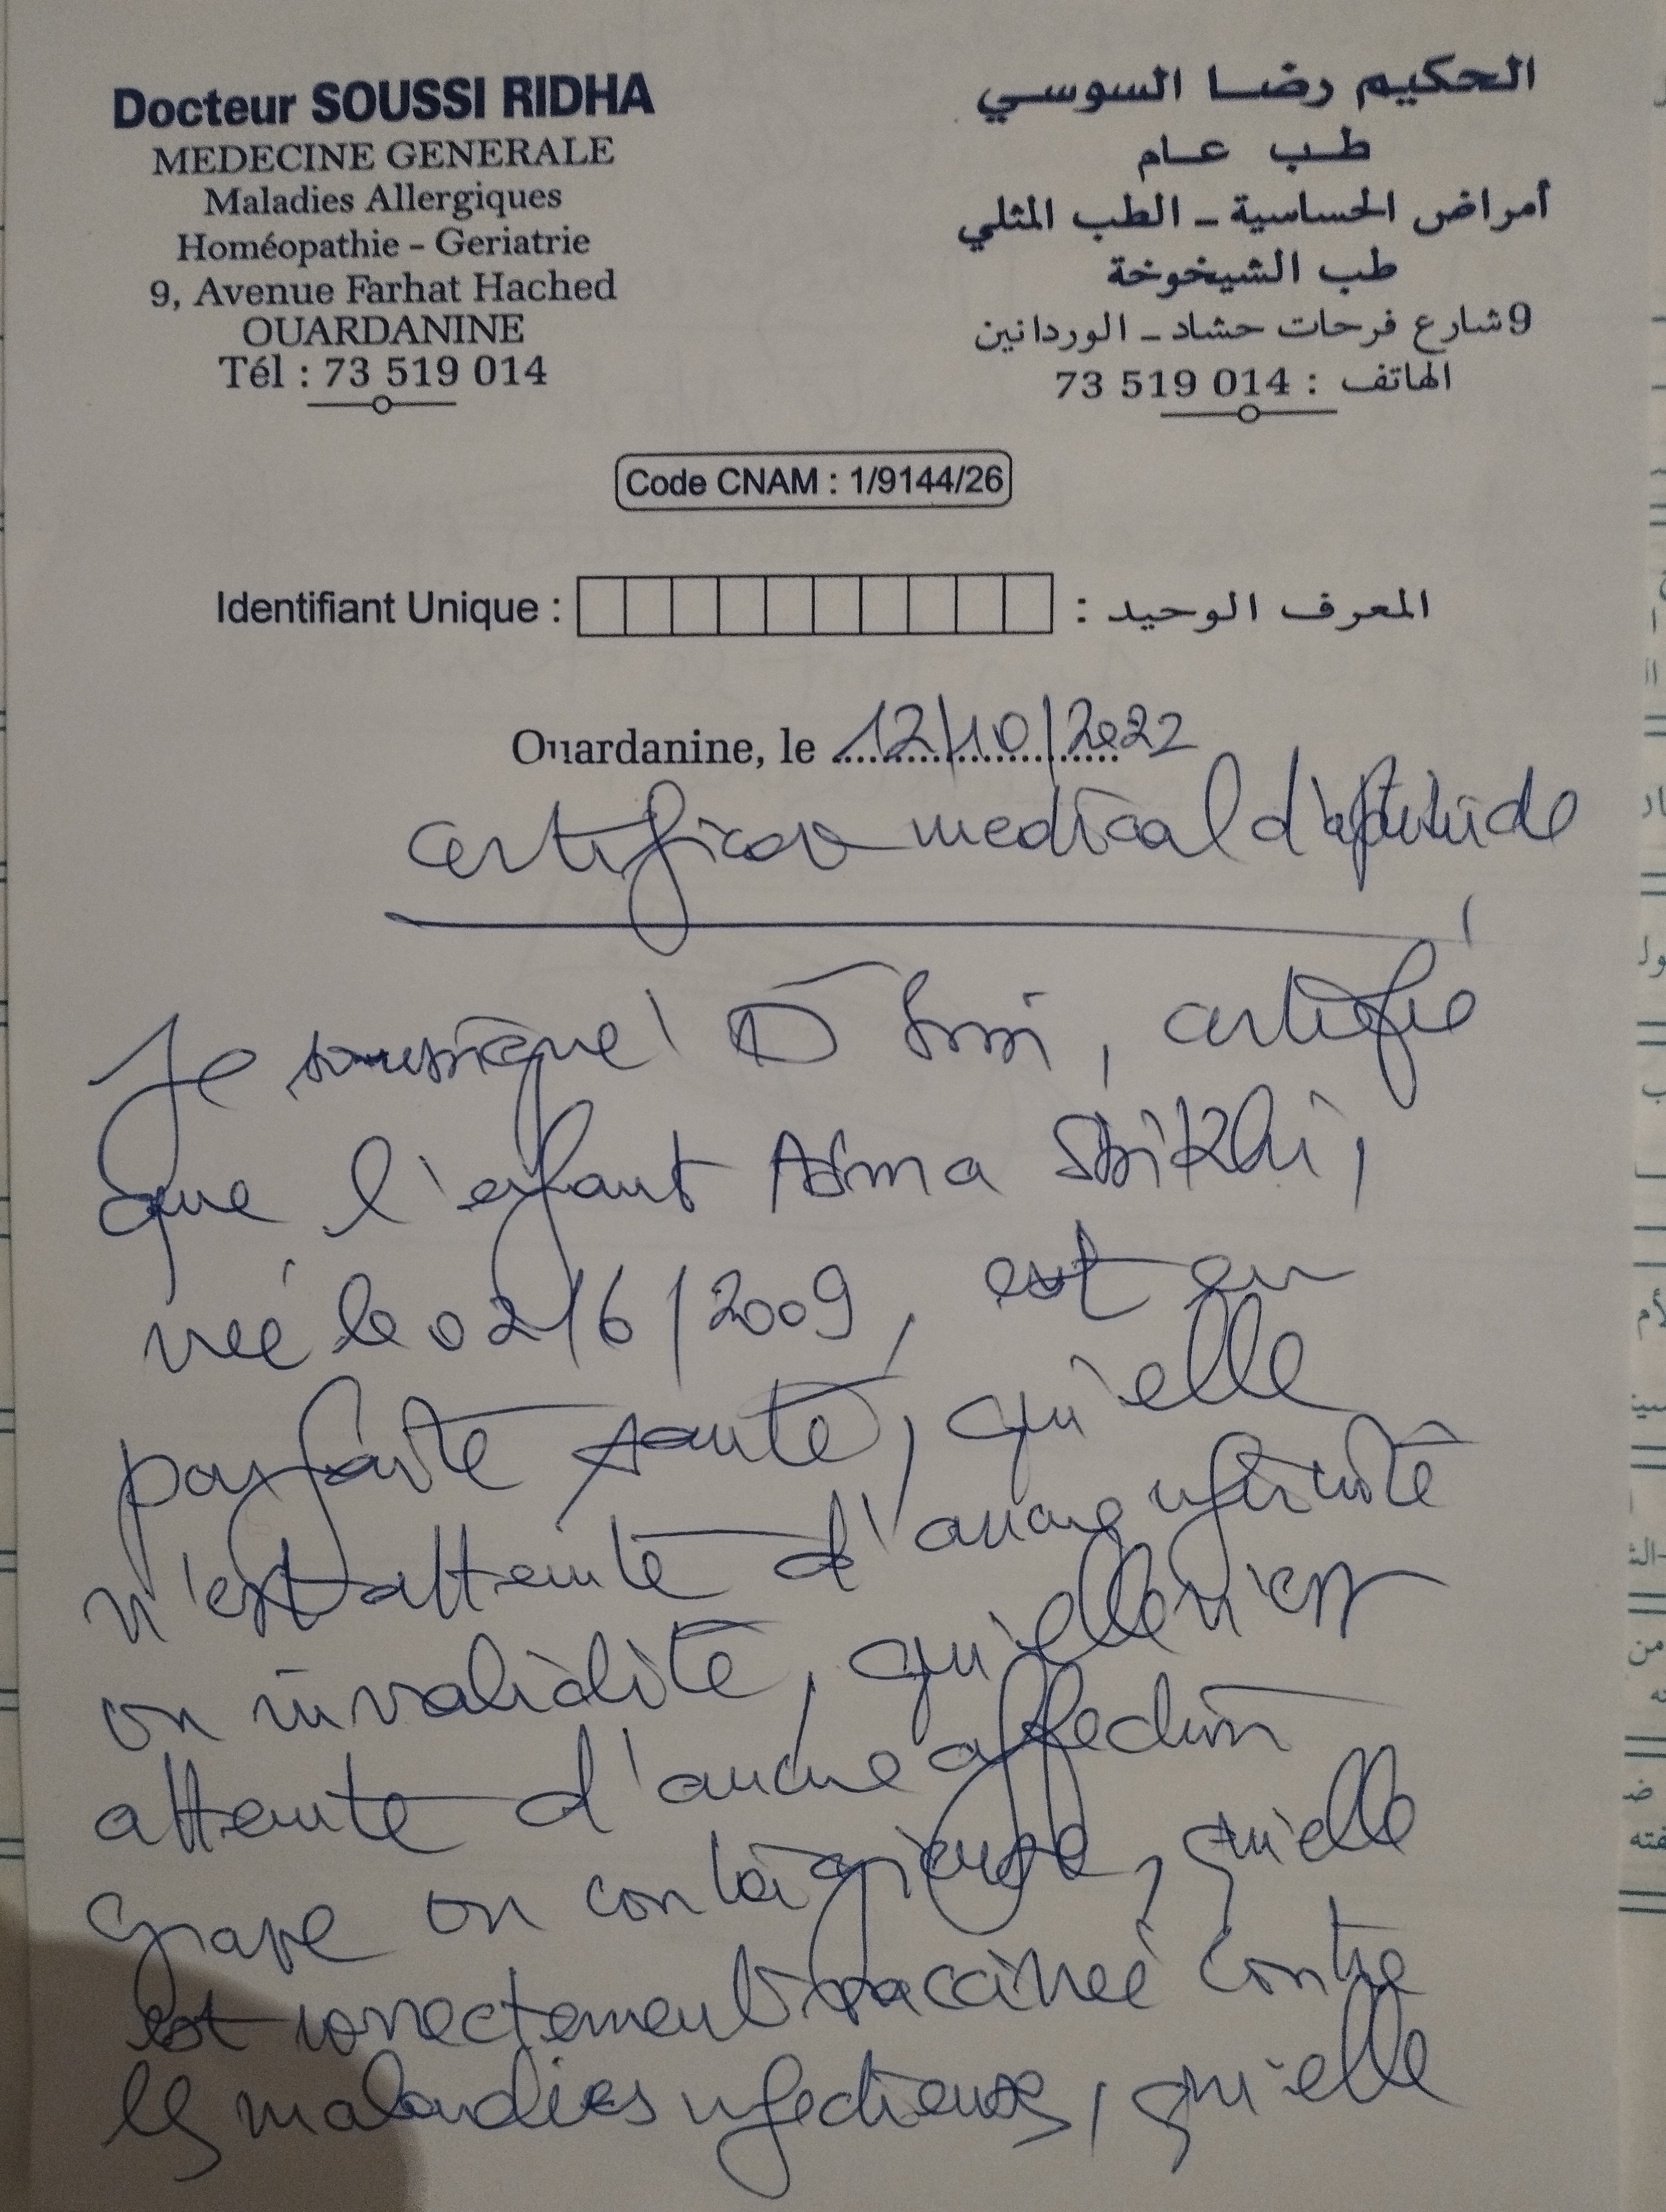 Docteur SOUSSI RIDHA
MEDECINE GENERALE
Maladies Allergiques
Homéopathie - Geriatrie
9, Avenue Farhat Hached
OUARDANINE
Tél : 73 519 014
الحكيم رضا السوسي
طب عام
أمراض الحساسية - الطب المثلي
طب الشيخوخة
9 شارع فرحات حشاد - الوردانين
الهاتف : 014 519 73
Code CNAM : 1/9144/26
Identifiant Unique : المعرف الوحيد :
Ouardanine, le 12/10/2022
certificat medical d'aptitude
Je soussigné Dr Soussi, certifie
que l'enfant Asma
née le 02/6/2009, est en
parfaite santé, qu'elle
n'est atteinte d'aucune infirmité
ou invalidité, qu'elle n'est
atteinte d'aucune affection
grave ou contagieuse, qu'elle
est correctement vaccinée contre
les maladies infectieuses, qu'elle